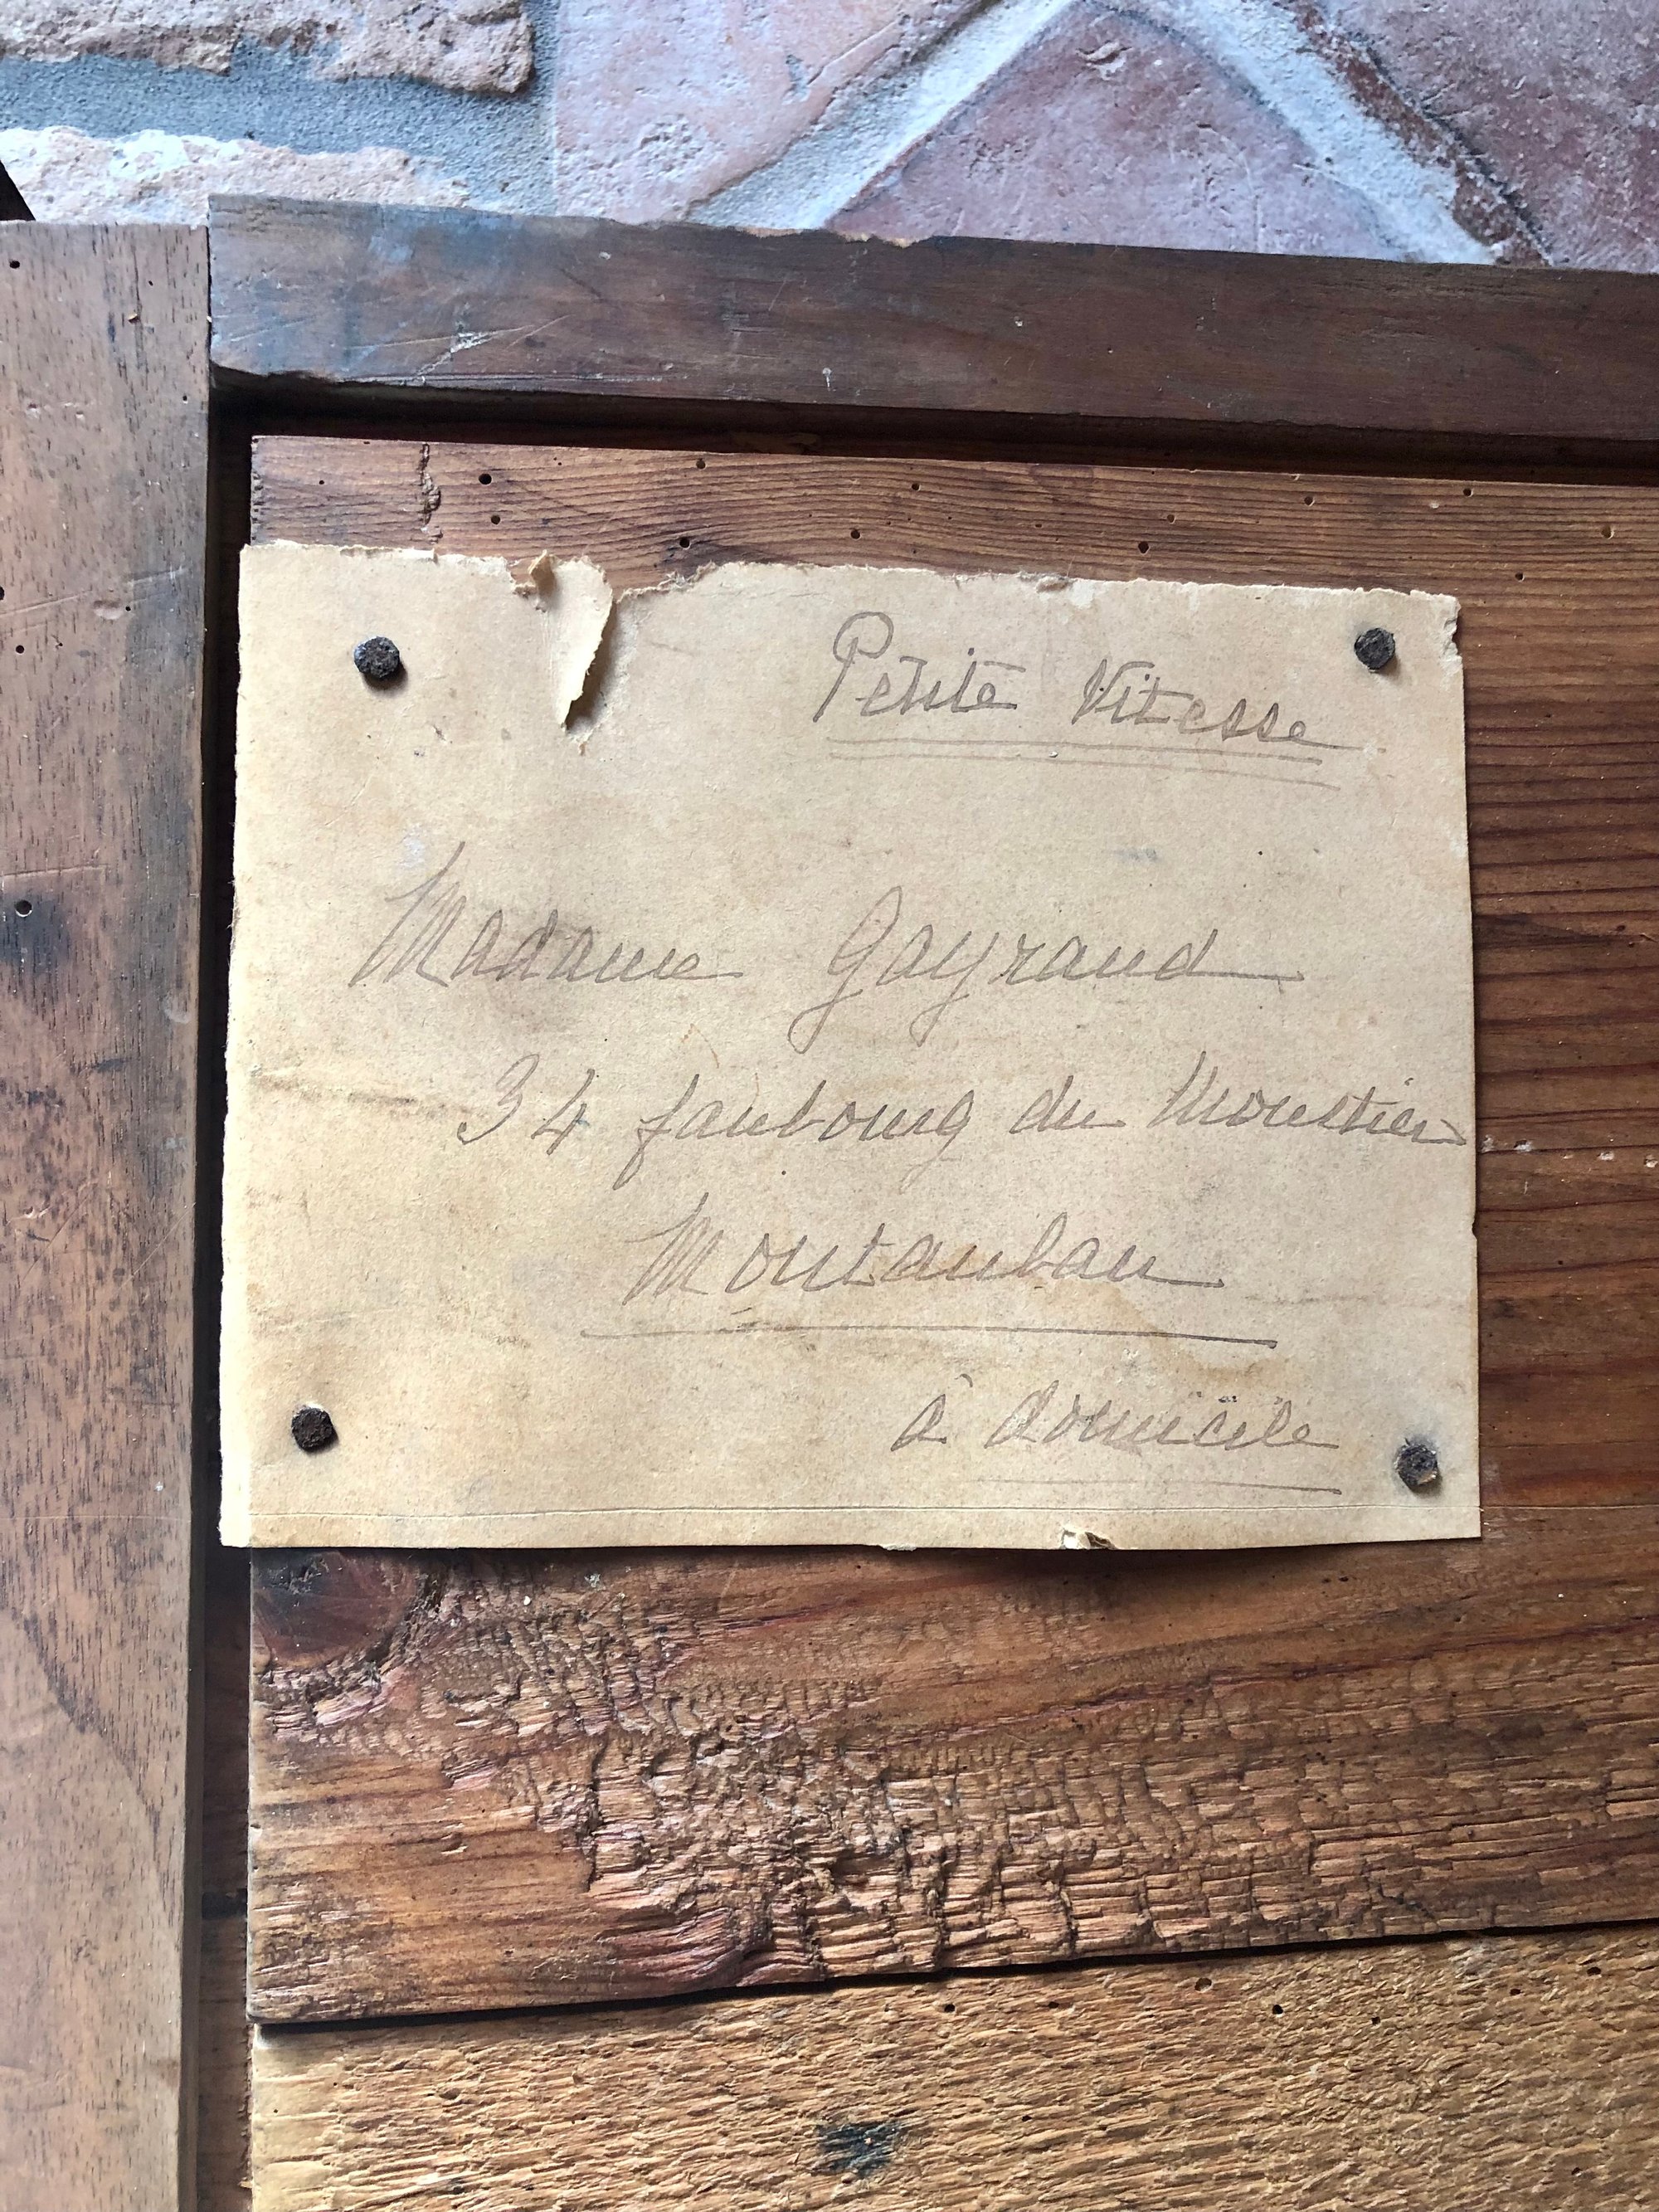 Petite Vitesse
Madame Gayraud
34 faubourg du Moustier
Montauban
à domicile